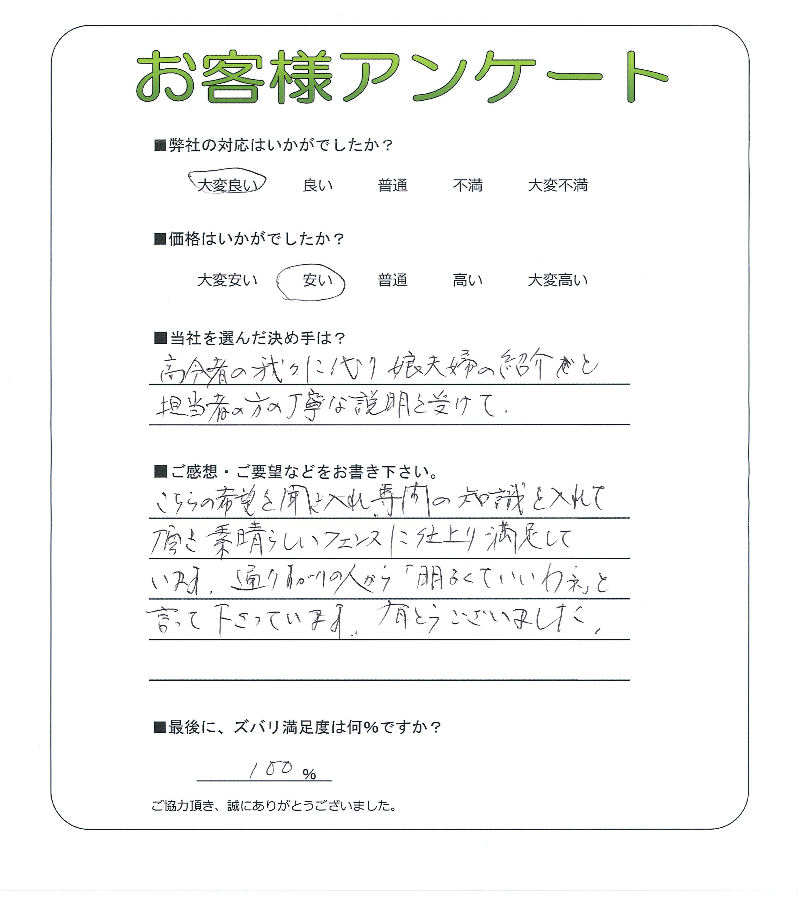 お客様アンケート
■弊社の対応はいかがでしたか？
大変良い 良い 普通 不満 大変不満
■価格はいかがでしたか？
大変安い 安い 普通 高い 大変高い
■当社を選んだ決め手は？
高令者の我々に代り娘夫婦の紹介と
担当者の方の丁寧な説明を受けて.
■ご感想・ご要望などをお書き下さい。
こちらの希望を聞き入れ専門の知識を入れて
頂き素晴らしいフェンスに仕上り満足して
います. 通りすがりの人から「明るくていいわネ」と
言って下さっています. 有とうございました.
■最後に、ズバリ満足度は何%ですか？
100 %
ご協力頂き、誠にありがとうございました。